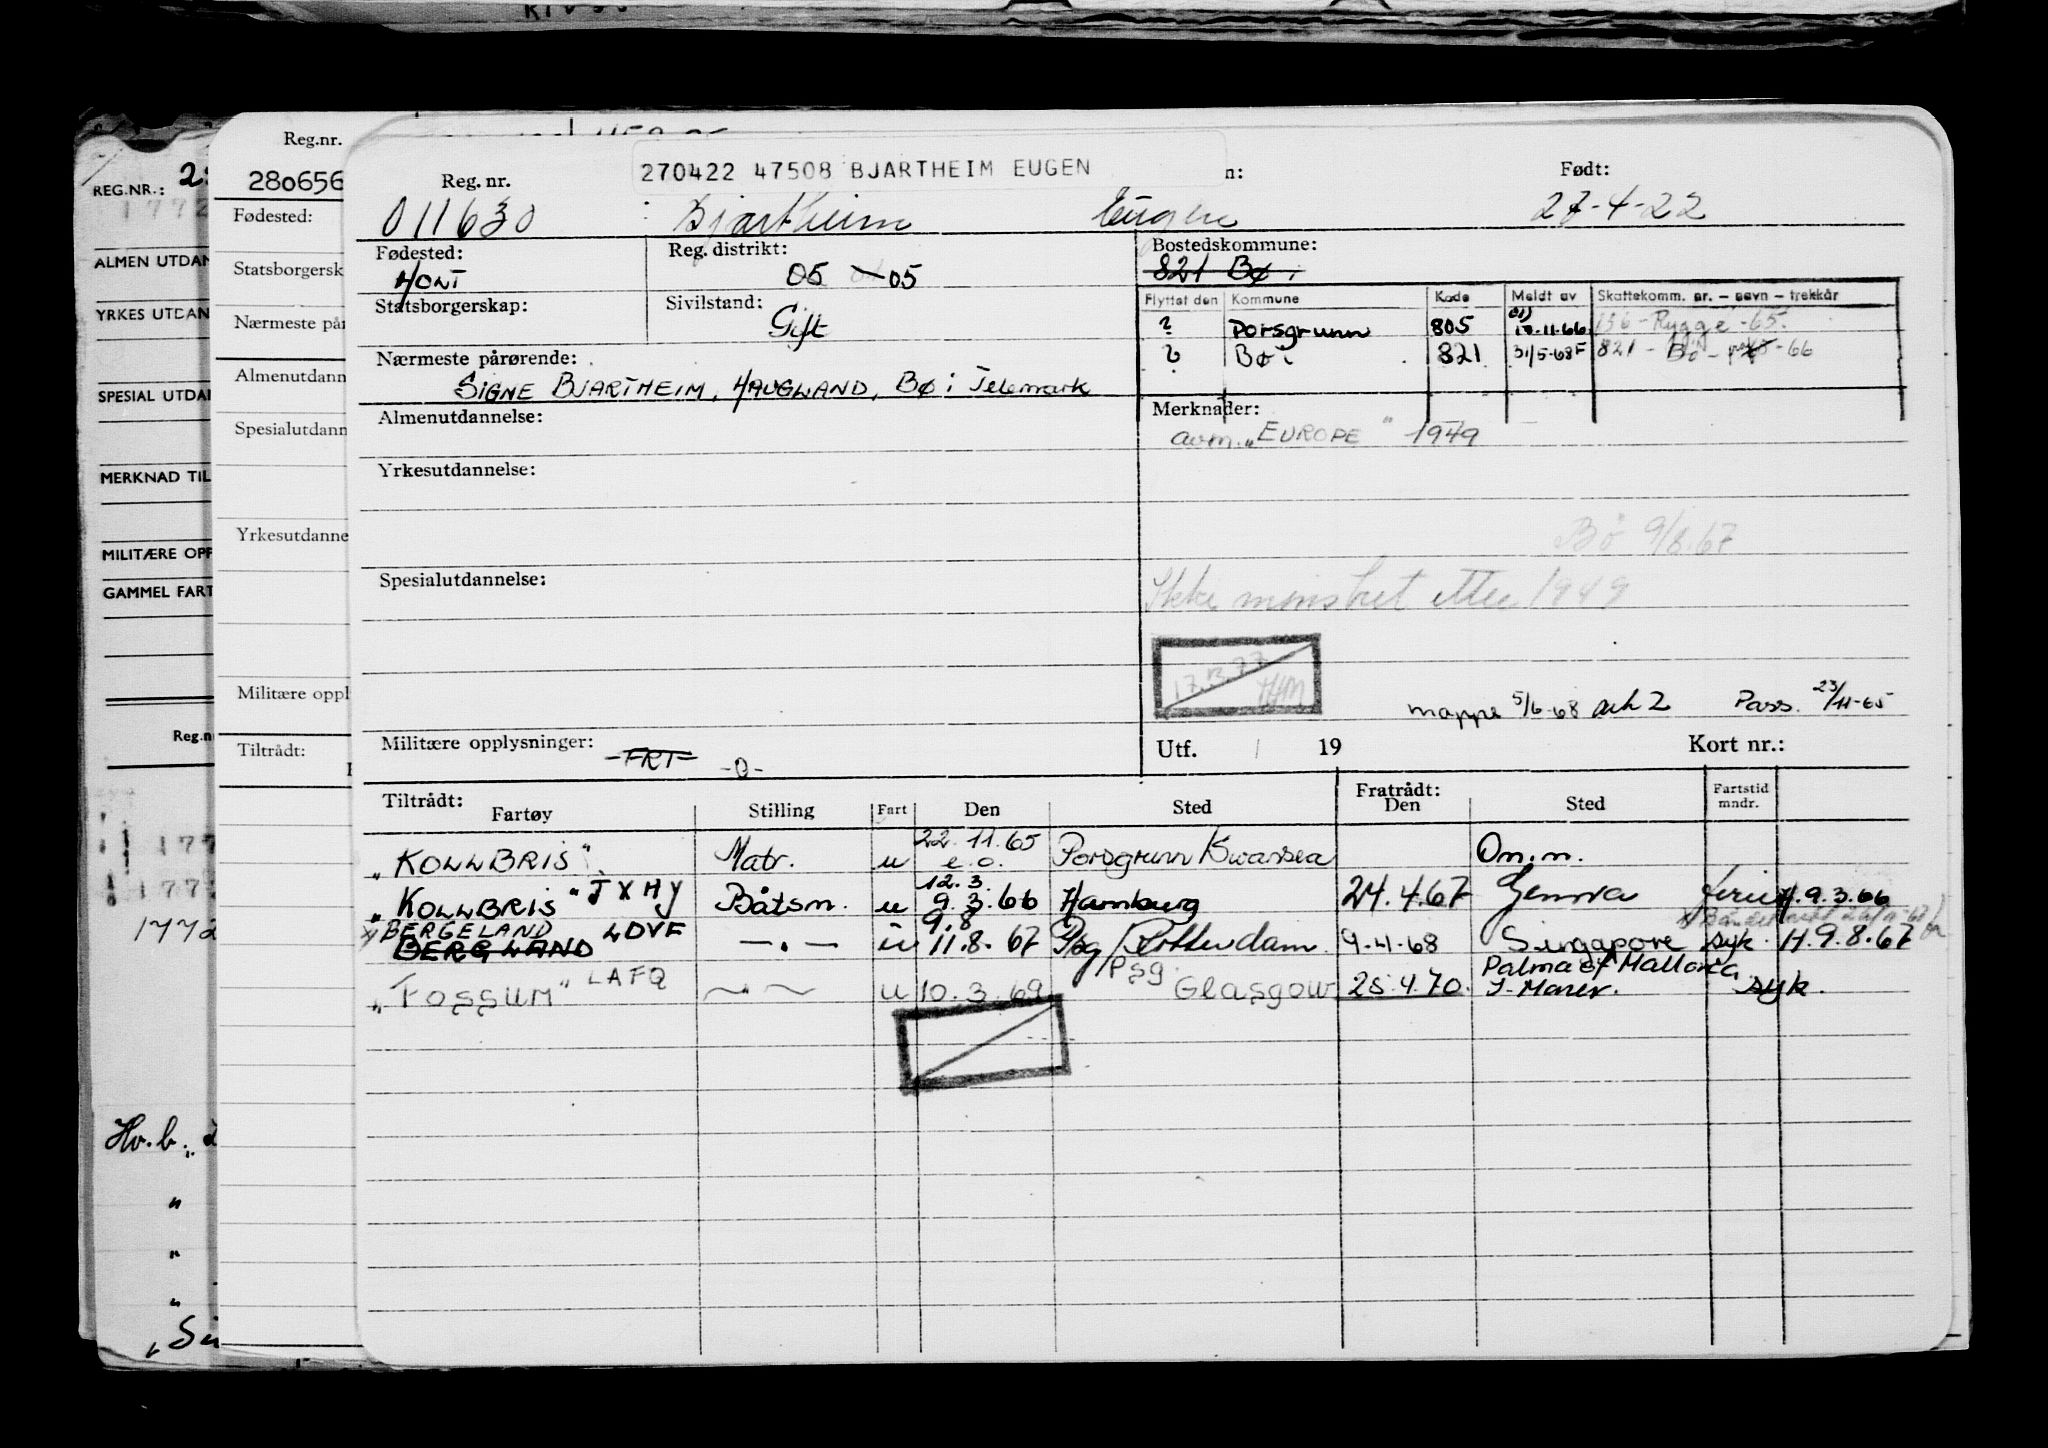 Reg.nr.
REG.NR.:
280656
Fødested:
Statsborgersk
ALMEN UTDAN
Nærmeste pår
YRKES UTDAN
Almenutdann
SPESIAL UTDA
Spesialutdann
MERKNAD TIL
Yrkesutdanne
MILITÆRE OPP
GAMMEL FART
Militære oppl
Reg.n
Tiltrådt:
1772
Hv.b.
270422 47508 BJARTHEIM EUGEN
Reg. nr. n: Født:
011630 Bjartheim Eugen 27-4-22
Fødested: Reg. distrikt: Bostedskommune:
HOLT 05 - 05 821 Bø i
Statsborgerskap: Sivilstand: Gift
Flyttet den Kommune Kode Meldt av Skattekomm. nr. – navn – trekkår
? Porsgrunn 805 18.11.66 136 - Rygge -65.
? Bø i 821 31/5-68F 821 - Bø - 66
Nærmeste pårørende:
SIGNE BJARTHEIM, HAUGLAND, Bø i Telemark
Almenutdannelse: Merknader:
avm. „EUROPE" 1949
Yrkesutdannelse:
Bø 9/8.67
Spesialutdannelse: Ikke mønstret etter 1949
17.3.77
mappe 5/6-68 ark 2 Pass. 23/11-65
Militære opplysninger: FRT -0- Utf. / 19 Kort nr.:
Tiltrådt: Fratrådt: Fartstid mndr.
Fartøy Stilling Fart Den Sted Den Sted
„KOLLBRIS" Matr. u 22.11.65 e.o. Porsgrunn/Swansea Om.m.
„KOLLBRIS" JXHY Båtsm. u 12.3. 9.3.66 Hamburg 24.4.67 Genova ferie H.9.3.66
x) BERGELAND BERGLAND LDVF —.— u 9.8 11.8.67 Psg/Rotterdam 9-4-68 Singapore syk. H.9.8.67
„FOSSUM" LAFQ u 10.3.69 Psg. Glasgow 25.4.70. Palma of Mallorca syk.